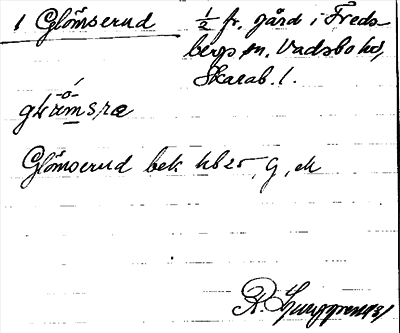 1 Glömserud ½ fr. gård i Freds-
bergs sn. Vadsbo hd,
Skarab. l.
Glömserud bek hb 25, G, ek
R. Ljunggren 1931